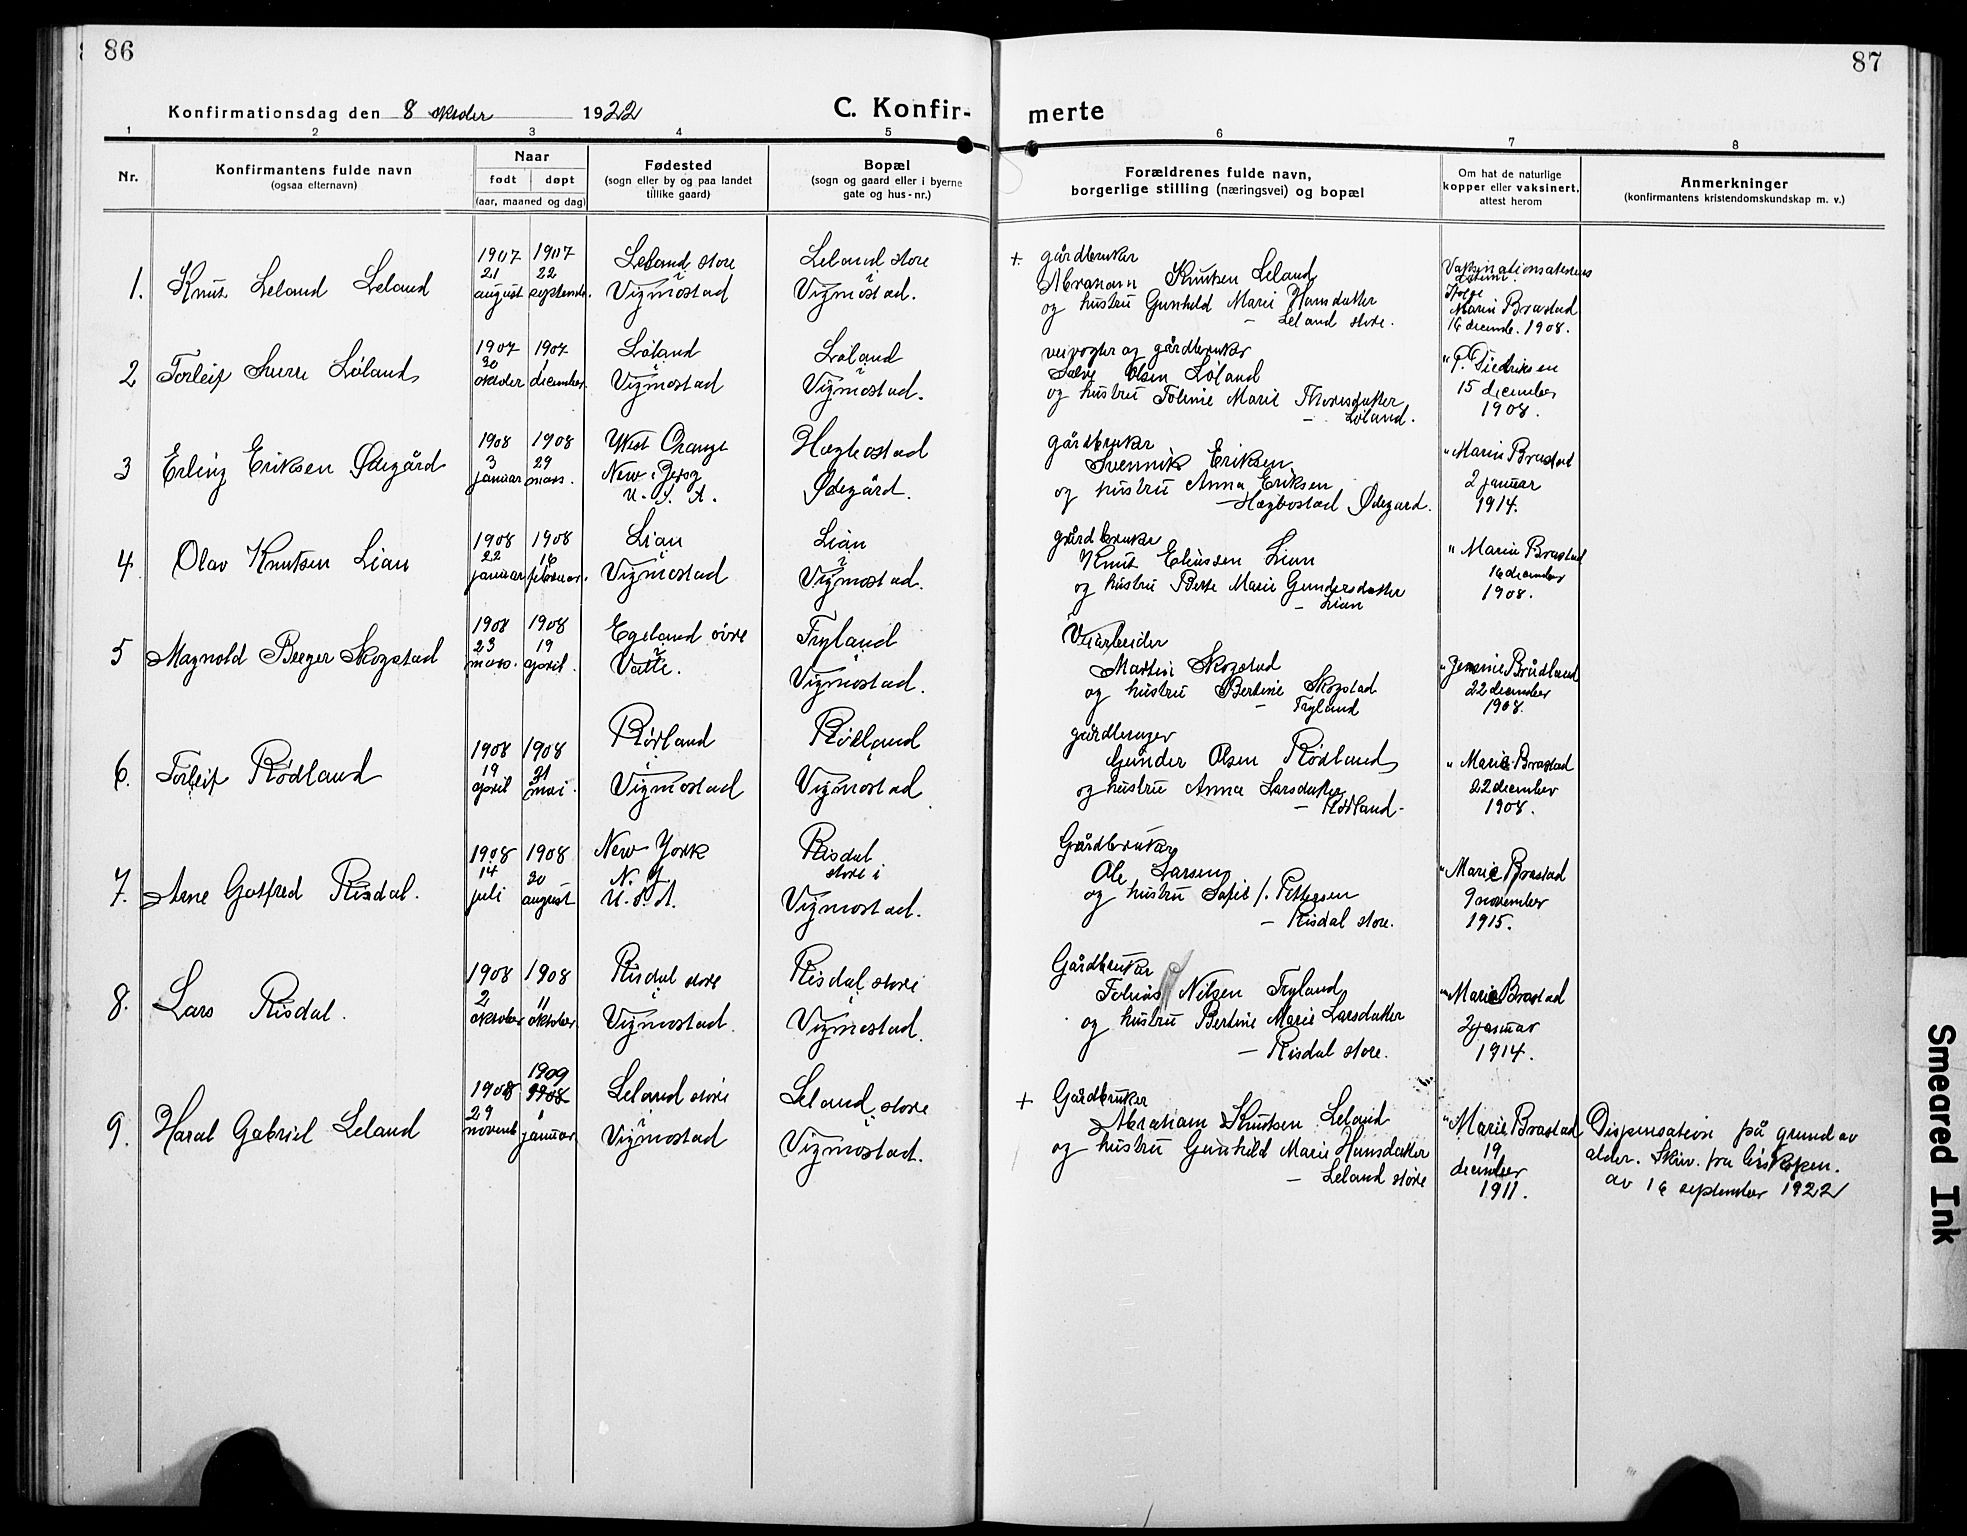 86
87
Konfirmationsdag den 8 oktober 1922
C. Konfir-
merte
1 2 3 4 5 6 7 8
Nr.
Konfirmantens fulde navn
(ogsaa efternavn)
Naar
født
døpt
(aar, maaned og dag)
Fødested
(sogn eller by og paa landet
tillike gaard)
Bopæl
(sogn og gaard eller i byerne
gate og hus-nr.)
Forældrenes fulde navn,
borgerlige stilling (næringsvei) og bopæl
Om hat de naturlige
kopper eller vaksinert,
attest herom
Anmerkninger
(konfirmantens kristendomskundskap m. v.)
1. Knut Leland Leland
1907
21
august
1907
22
septembr.
Leland store
i
Vigmostad
Leland store
i
Vigmostad.
+ gårdbruker
Abraham Knutsen Leland
og hustru Gunhild Marie Hansdatter
– Leland store.
Marie Brastad
16 decemb. 1908.
2 Torleif Løland
1907
30
oktober
1907
december.
Løland
i
Vigmostad
Løland
i
Vigmostad.
veivogter og gårdbruker
Salve Olsen Løland
og hustru Toline Marie Thorisdatter
– Løland.
" T. Diedriksen
15 december
1908.
3 Erling Eriksen Ødegård
1908
3
januar
1908
29
mars.
West Orange
New Jersy
U. S. A.
Hægbostad
Ødegård.
gårdbruker
Svennik Eriksen
og hustru Anna Eriksen
– Hægbostad Ødegard.
" Marie Brastad
2 januar
1914.
4 Olav Knutsen Lian
1908
22
januar
1908
16
februar.
Lian
i
Vigmostad
Lian
i
Vigmostad.
gårdbruker
Knut Eliassen Lian
og hustru Berte Marie Gundersdatter
– Lian
" Marie Brastad
16 december
1908.
5 Magnold Berger Skogstad
1908
23
mars.
1908
19
april.
Egeland øvre
i
Valle.
Tryland
i
Vigmostad.
Veiarbeider
Martin Skogstad
og hustru Bertine Skogstad
– Tryland
" Jennie Brådland
22 december
1908.
6. Torleif Rødland
1908
19
april
1908
21
mai.
Rødland
i
Vigmostad
Rødland
i
Vigmostad
gårdbruger
Gunder Olsen Rødland
og hustru Anna Larsdatter
– Rødland.
" Marie Brastad
22 december
1908.
7. Arne Gotfred Risdal.
1908
14
juli
1908
30
august
New York
N. Y.
U. S. A.
Risdal
store i
Vigmostad.
Gårdbruker
Ole Larsen
og hustru Sofie f. Pettersen
– Risdal store.
" Marie Brastad
9 november
1915.
8. Lars Risdal.
1908
2
oktober
1908
11
oktober
Risdal store
i
Vigmostad.
Risdal store
i
Vigmostad.
Gårdbruker
Tobias Nilsen Tryland
og hustru Bertine Marie Larsdatter
– Risdal store.
" Marie Brastad
2 januar
1914.
9. Haral Gabriel Leland
1908
29
novemb.
1909
1908
1
januar
Leland store
i
Vigmostad
Leland store
i
Vigmostad.
+ Gårdbruker
Abraham Knutsen Leland
og hustru Gunhild Marie Hansdatter
– Leland store
" Marie Brastad
19
december
1911.
Dispensation på grund av
alder. Skriv. fra biskopen.
av 16 september 1922
Smeared Ink